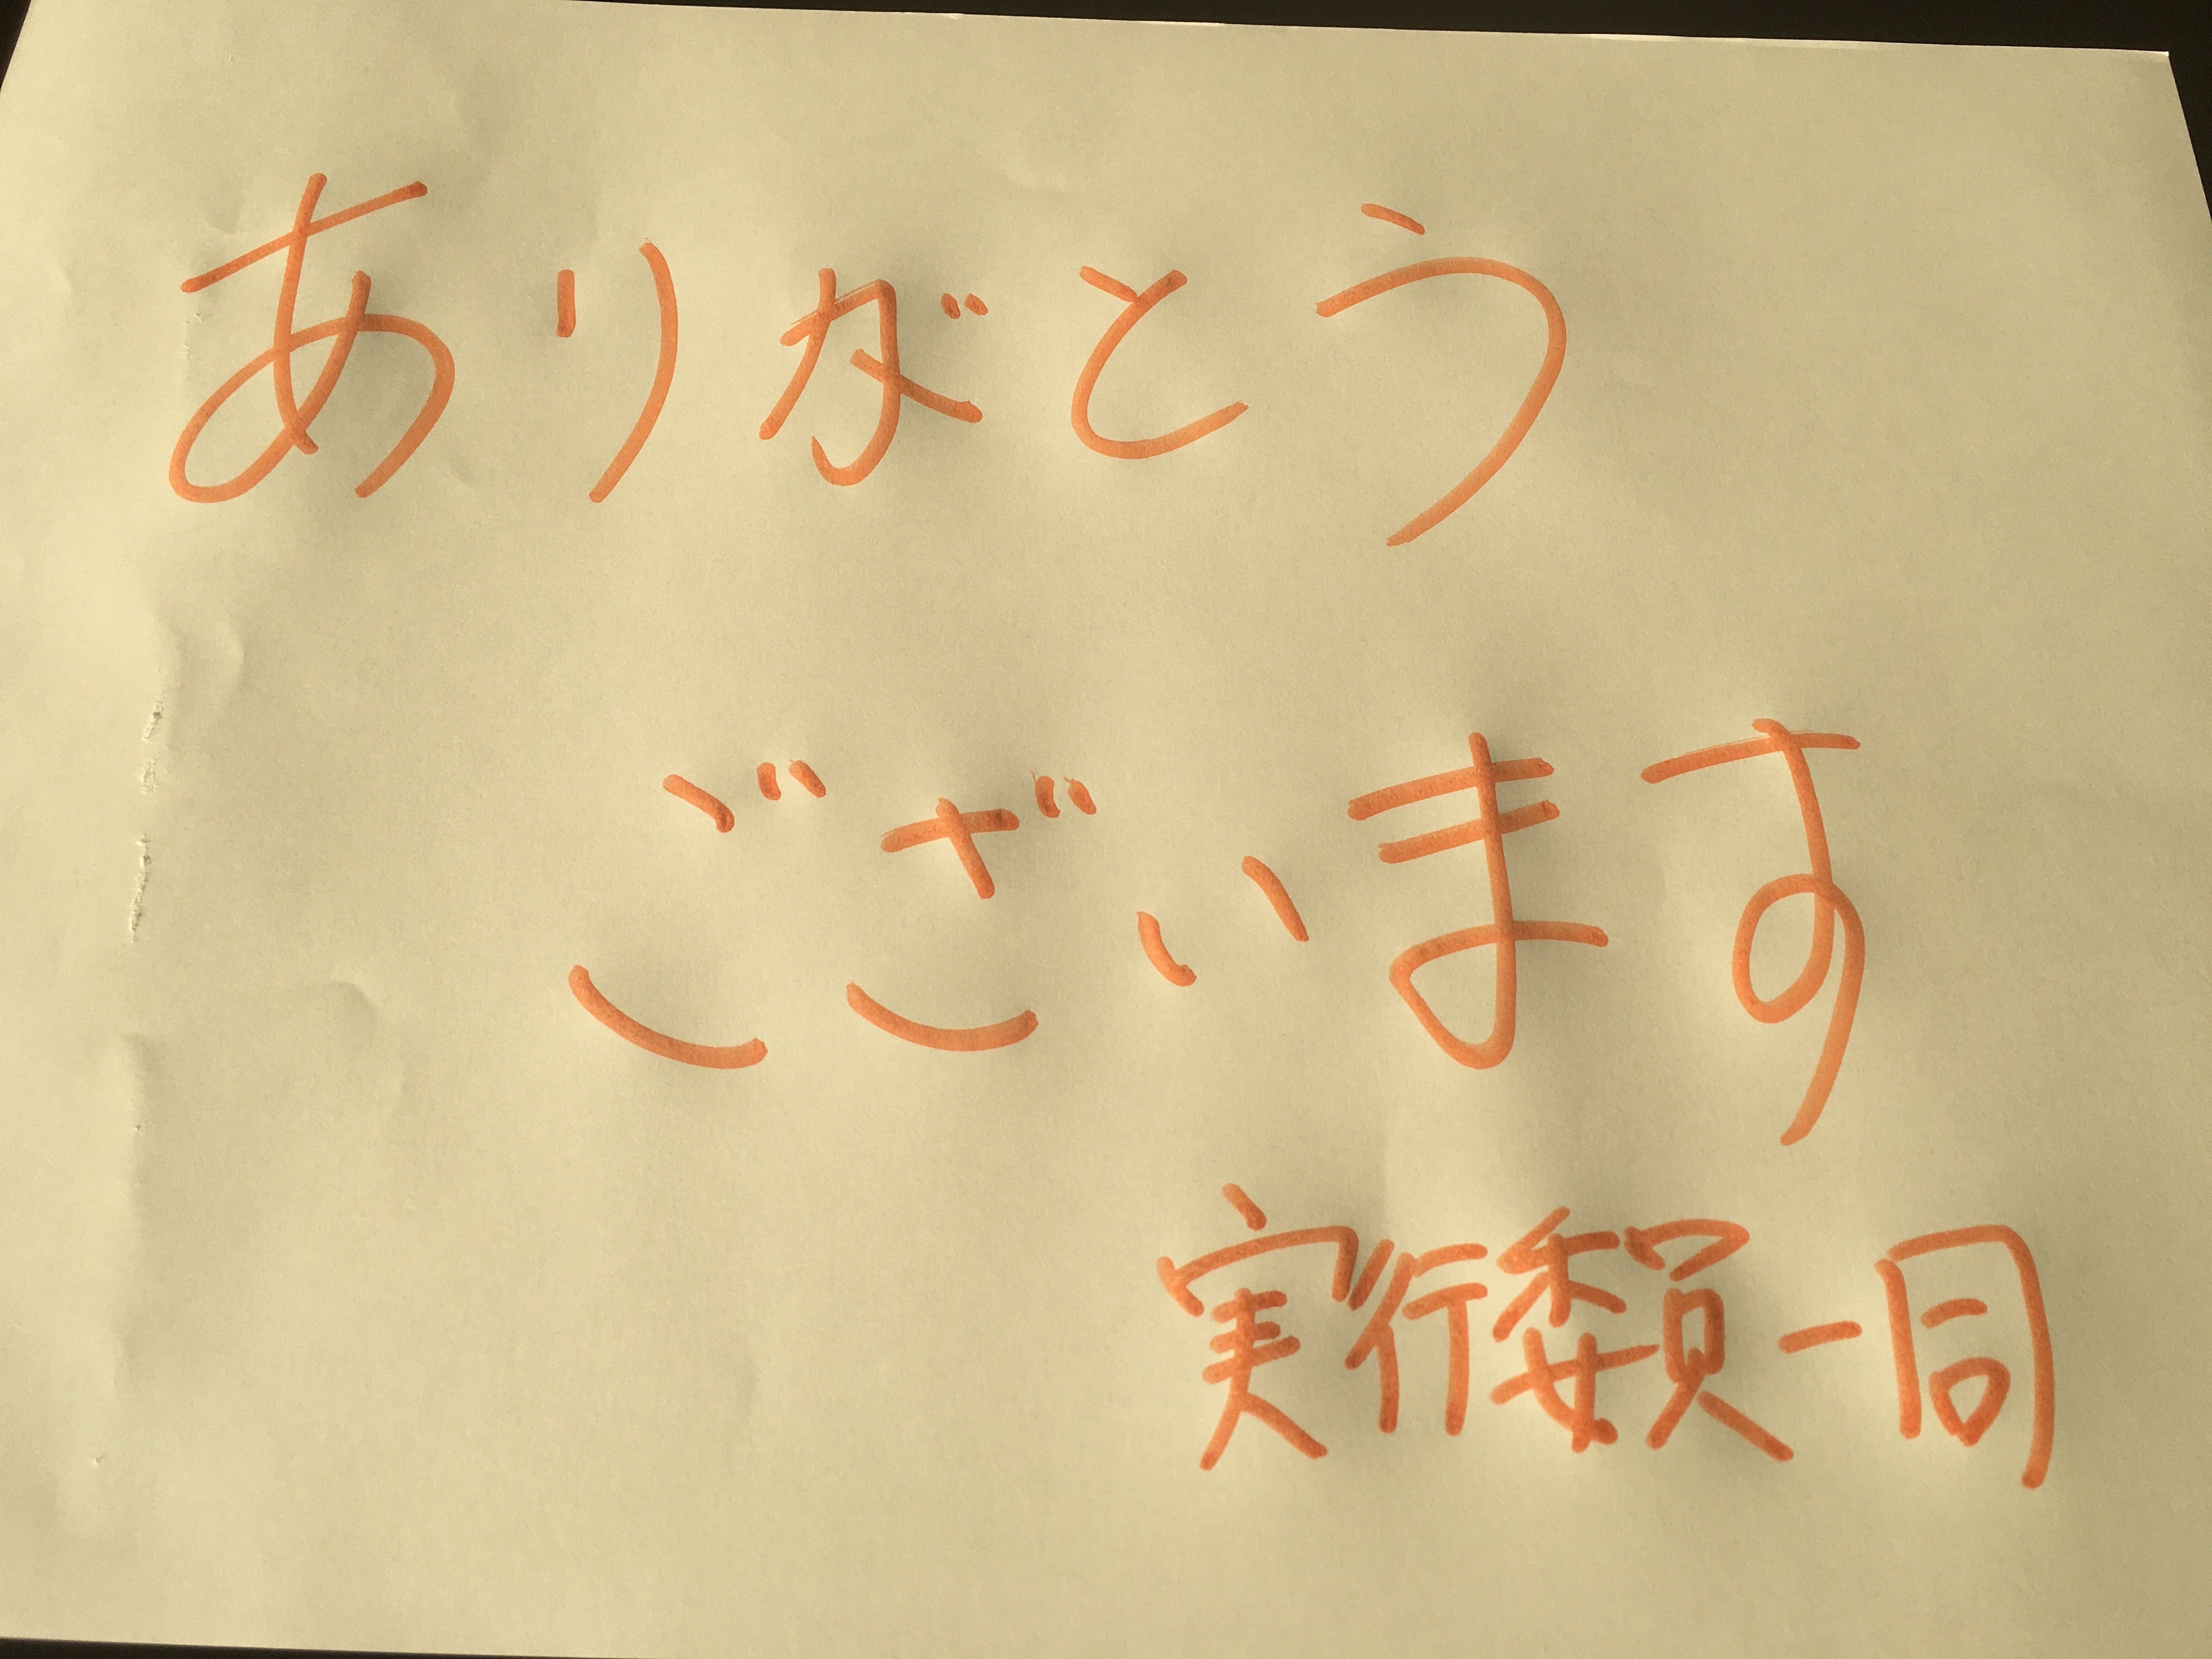 ありがとう
ございます
実行委員一同